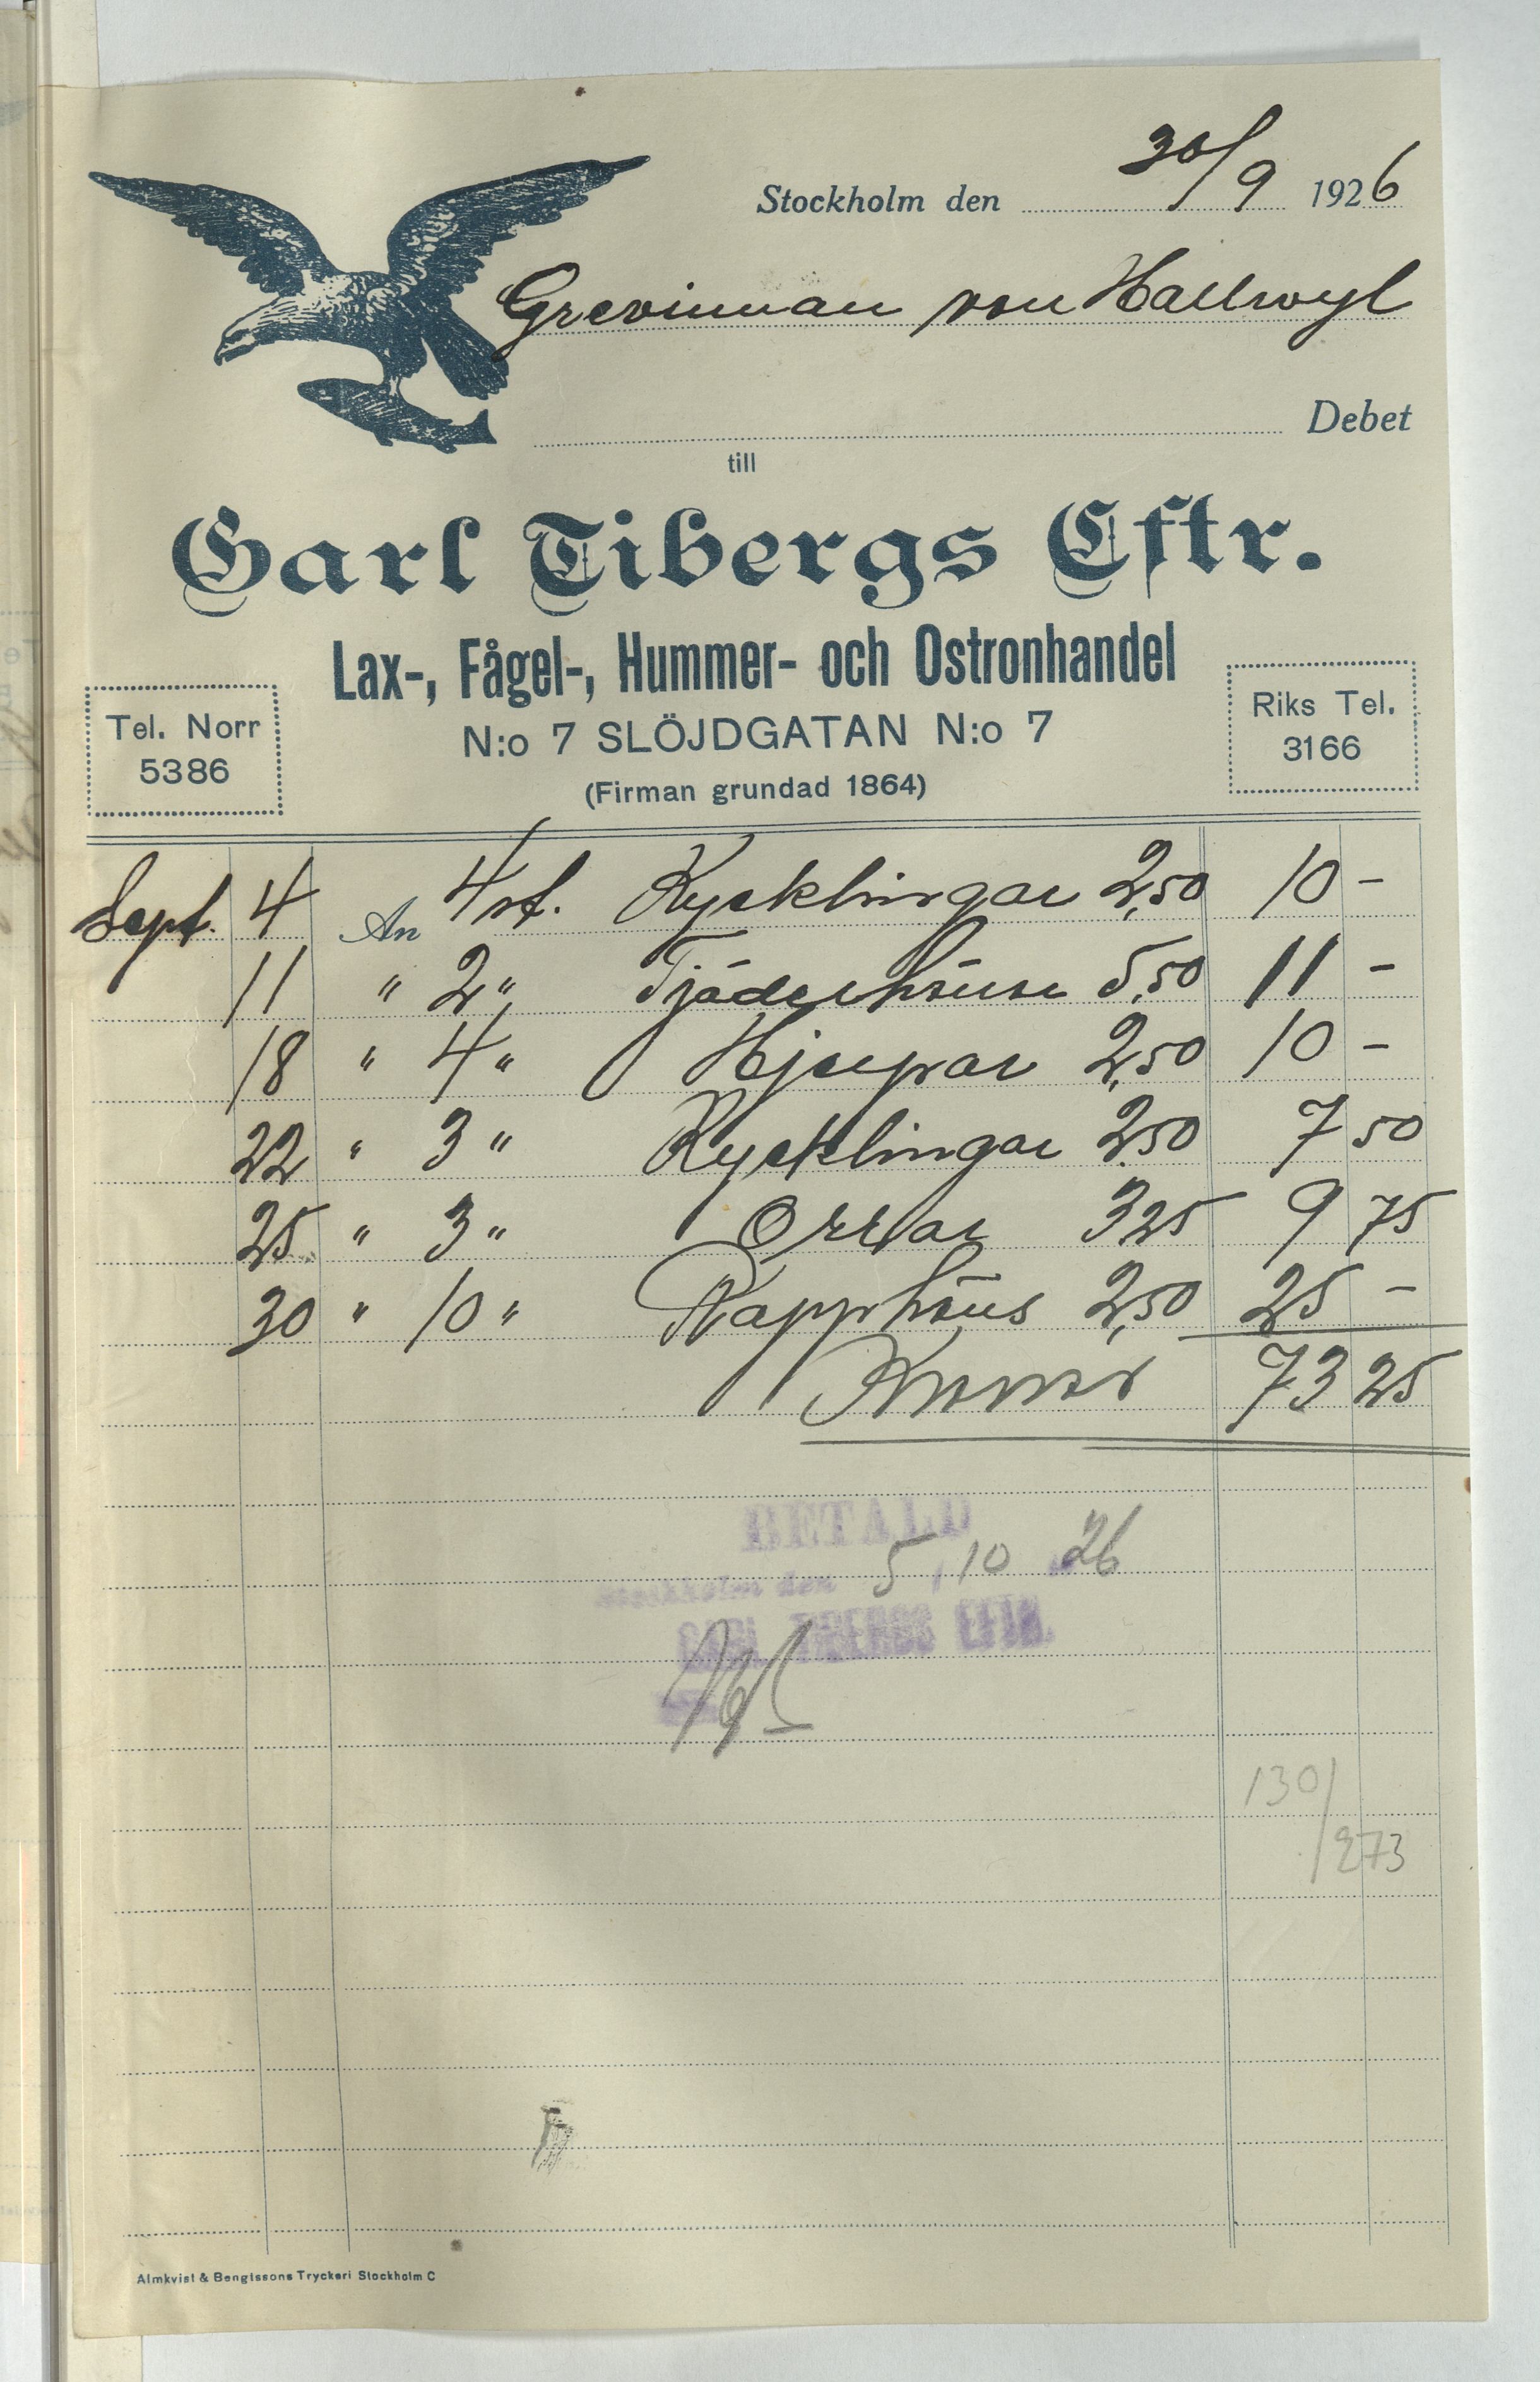 Stockholm den 30/9 1926
Grevinnan von Hallwyl
Debet
till
Carl Tibergs Eftr.
Lax-, Fågel-, Hummer- och Ostronhandel
Tel. Norr 5386
N:o 7 SLÖJDGATAN N:o 7
Riks Tel. 3166
(Firman grundad 1864)
Sept. 4 An 4 st. Kycklingar 2,50 10 -
11 " 2 " Tjäderhöns 5,50 11 -
18 " 4 " Hjerpar 2,50 10 -
22 " 3 " Kycklingar 2,50 7 50
25 " 3 " Orrar 3 25 9 75
30 " 10 " Rapphöns 2,50 25 -
Kronor 73 25
BETALD
Stockholm den 5/10 26
CARL TIBERGS EFTR.
130/273
Almkvist & Bengtssons Tryckeri Stockholm C